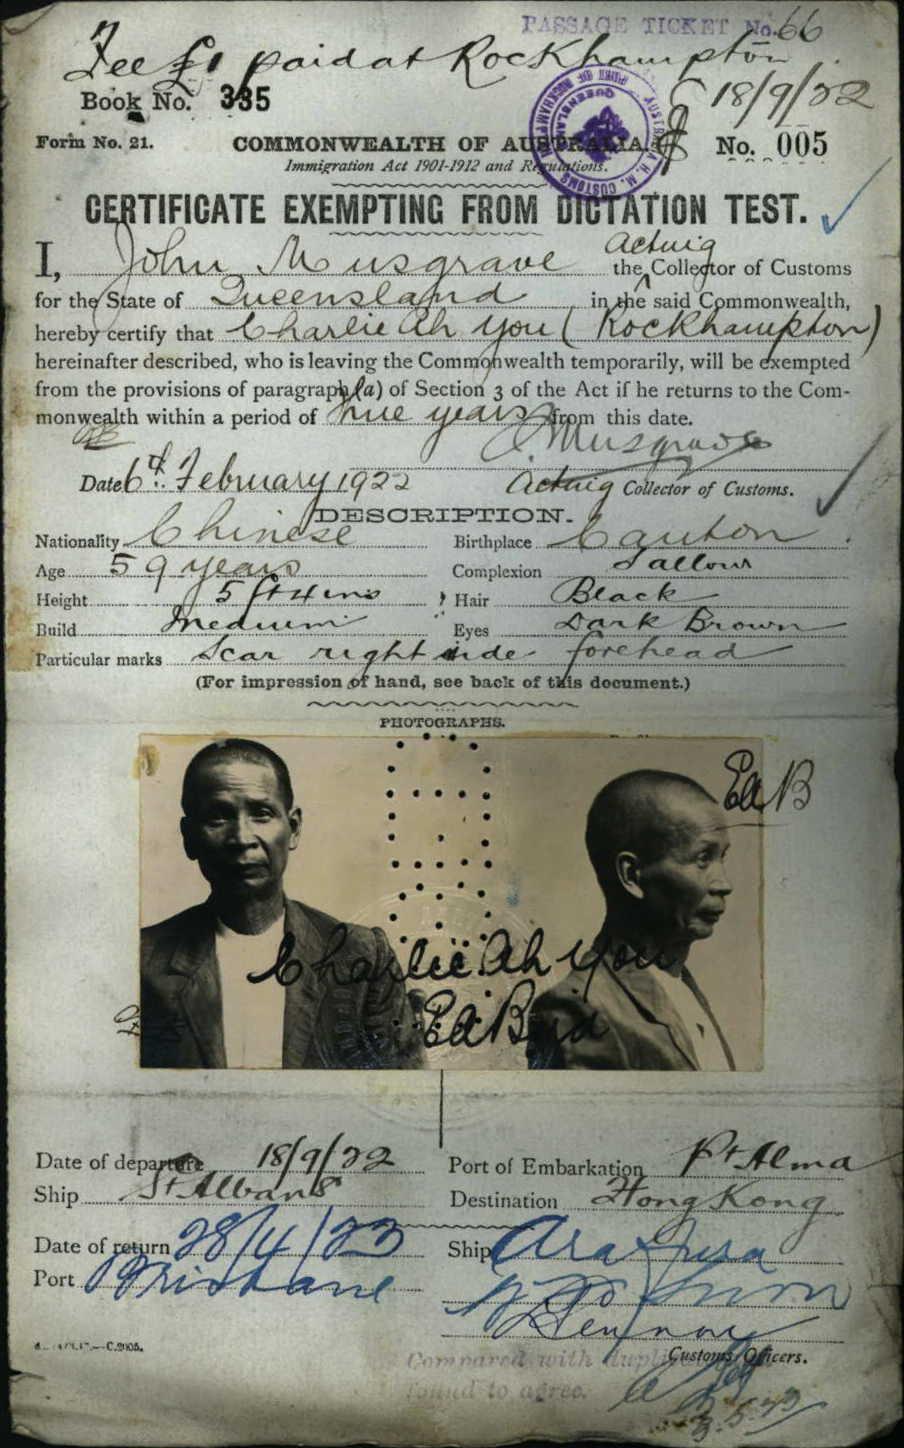 PASSAGE TICKET No. 66
Fee £1 paid at Rockhampton
18/9/22
Book No. 335
Form No. 21. COMMONWEALTH OF AUSTRALIA. No. 005
Immigration Act 1901-1912 and Regulations.
CERTIFICATE EXEMPTING FROM DICTATION TEST.
Acting
I, John Musgrave the Collector of Customs
for the State of Queensland in the said Commonwealth,
hereby certify that Charlie Ah You (Rockhampton)
hereinafter described, who is leaving the Commonwealth temporarily, will be exempted
from the provisions of paragraph (a) of Section 3 of the Act if he returns to the Com-
monwealth within a period of from this date.
J. Musgrave
Date 6th February 1922 Acting Collector of Customs.
DESCRIPTION.
Nationality Chinese Birthplace Canton
Age 59 years Complexion Sallow
Height 5 ft 4 ins Hair Black
Build Medium Eyes Dark Brown
Particular marks Scar right side forehead
(For impression of hand, see back of this document.)
PHOTOGRAPHS.
Ed B
Charlie Ah You
Date of departure 18/9/22 Port of Embarkation Pt Alma
Ship St Albans Destination Hong Kong
Date of return 28/4/23 Ship Arafura
Port Brisbane
Customs Officers.
Compared with duplicate
found to agree.
3.5.23